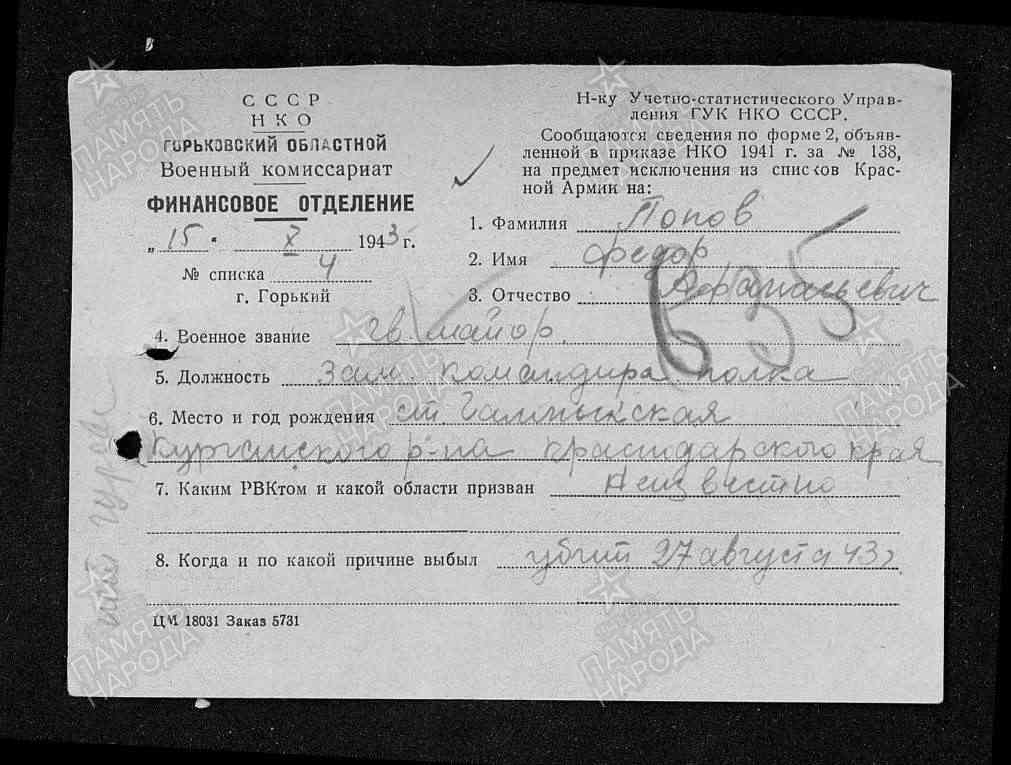 СССР
НКО
ГОРЬКОВСКИЙ ОБЛАСТНОЙ
Военный комиссариат
ФИНАНСОВОЕ ОТДЕЛЕНИЕ
„ 15 " X 1943 г.
№ списка 4
г. Горький
Н-ку Учетно-статистического Управ-
ления ГУК НКО СССР.
Сообщаются сведения по форме 2, объяв-
ленной в приказе НКО 1941 г. за № 138,
на предмет исключения из списков Крас-
ной Армии на:
1. Фамилия Попов
2. Имя Федор
3. Отчество Афанасьевич
635
4. Военное звание гв. майор.
5. Должность Зам. командира полка
6. Место и год рождения ст.
Курганского р-на Краснодарского края
7. Каким РВКтом и какой области призван Неизвестно
8. Когда и по какой причине выбыл убит 27 августа 43 г
ЦМ 18031 Заказ 5731
ПАМЯТЬ НАРОДА
ПАМЯТЬ НАРОДА
ПАМЯТЬ НАРОДА
ПАМЯТЬ НАРОДА
ПАМЯТЬ НАРОДА
ПАМЯТЬ НАРОДА